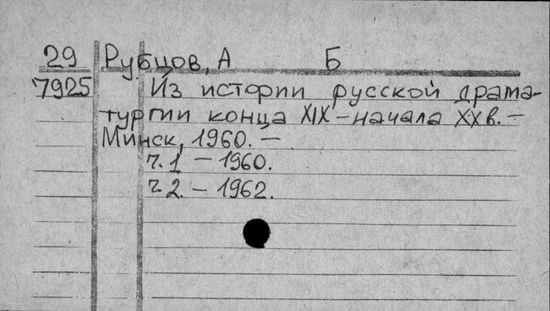 29 Рубцов, А Б
7925 Из истории русской драма-
тургии конца XIX - начала XX в. -
Минск, 1960. -
ч. 1 - 1960.
ч. 2. - 1962.